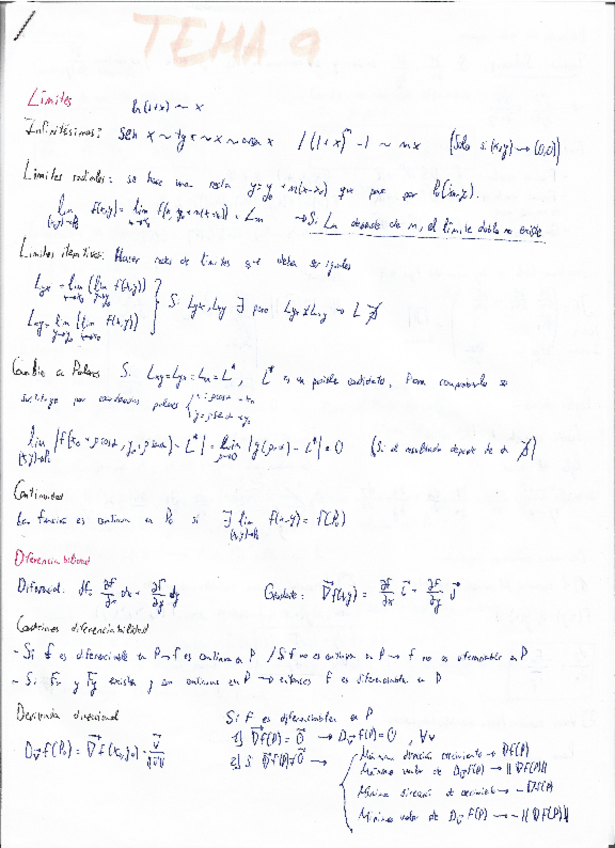 TEMA 9
Límites ln(1+x) ~ x
Infinitésimos: sen x ~ tg x ~ x ~ arcsen x / (1+x)^m - 1 ~ mx (Solo si (x,y) → (0,0))
Límites radiales: se hace una recta y = y₀ + m(x-x₀) que pase por P₀(x₀,y₀).
lim (x,y)→P₀ f(x,y) = lim x→x₀ f(x, y₀+m(x-x₀)) = Lm → Si Lm depende de m, el límite doble no existe
Límites iterativos: Hacer redes de límites que deben ser iguales
Lyx = lim x→x₀ (lim y→y₀ f(x,y))
Lxy = lim y→y₀ (lim x→x₀ f(x,y)) } Si Lyx, Lxy ∃ pero Lyx ≠ Lxy → L ∄
Cambio a Polares Si Lxy = Lyx = Lm = L*, L* es un posible candidato. Para comprobarlo se
sustituye por coordenadas polares { x = ρcosα + x₀
y = ρsenα + y₀
lim (x,y)→P₀ |f(x₀+ρcosα, y₀+ρsenα) - L*| = lim ρ→0 |g(ρ,α) - L*| = 0 (Si el resultado depende de α ∄)
Continuidad
Una función es continua en P₀ si ∃ lim (x,y)→P₀ f(x,y) = f(P₀)
Diferenciabilidad
Diferencial: df = ∂f/∂x dx + ∂f/∂y dy Gradiente: ∇f(x,y) = ∂f/∂x i + ∂f/∂y j
diferenciabilidad
- Si f es diferenciable en P → f es continua en P / Si f no es continua en P → f no es diferenciable en P
- Si y existen y son continuas en P → entonces f es diferenciable en P
Derivada direccional Si f es diferenciable en P
Dv f(P₀) = ∇f(x₀,y₀) · v/||v||
1) ∇f(P) = 0 → Dv f(P) = 0, ∀v
2) Si ∇f(P) ≠ 0 →
Máxima dirección crecimiento → ∇f(P)
Máximo valor de Dv f(P) → ||∇f(P)||
Mínima dirección de crecimiento → -∇f(P)
Mínimo valor de Dv f(P) → -||∇f(P)||